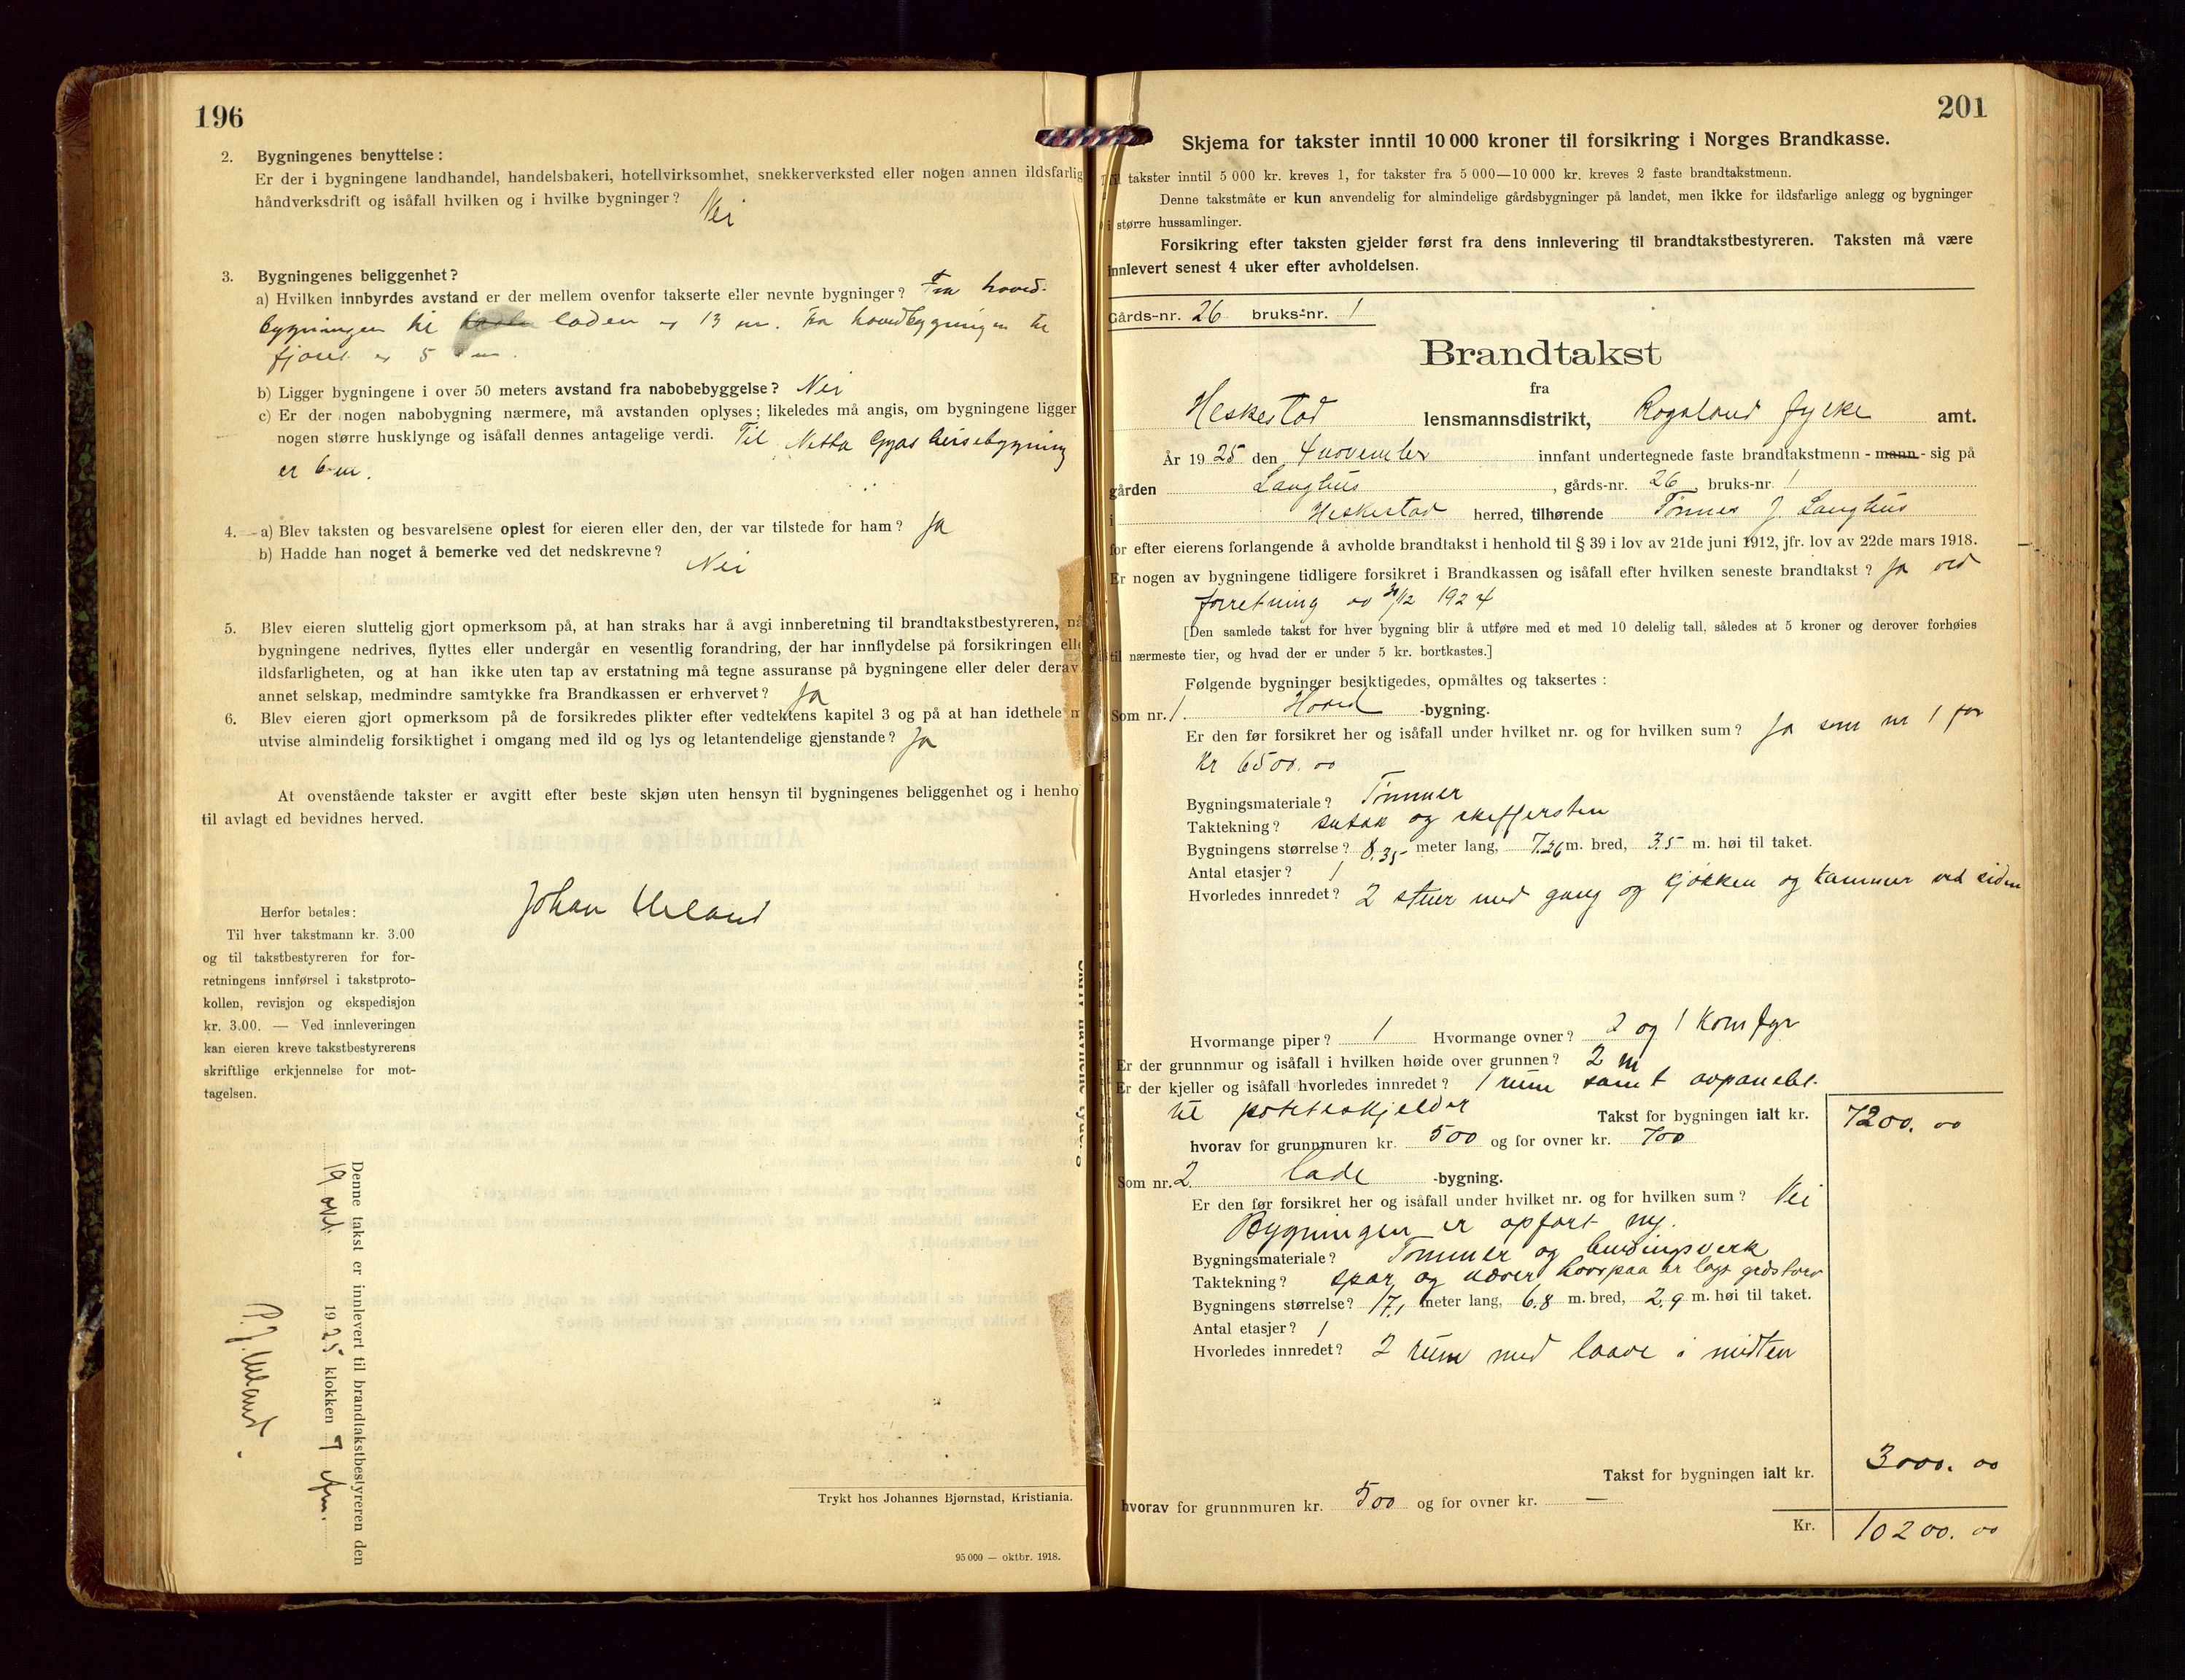 196
2. Bygningenes benyttelse:
Er der i bygningene landhandel, handelsbakeri, hotellvirksomhet, snekkerverksted eller nogen annen ildsfarlig
håndverksdrift og isåfall hvilken og i hvilke bygninger? Nei
3. Bygningenes beliggenhet?
a) Hvilken innbyrdes avstand er der mellem ovenfor takserte eller nevnte bygninger? Fra hoved-
bygningen til laden er 13 m. Fra hovedbygningen til
fjøset er 5 m.
b) Ligger bygningene i over 50 meters avstand fra nabobebyggelse? Nei
c) Er der nogen nabobygning nærmere, må avstanden oplyses; likeledes må angis, om bygningene ligger
nogen større husklynge og isåfall dennes antagelige verdi. Til
er 6 m.
4. a) Blev taksten og besvarelsene oplest for eieren eller den, der var tilstede for ham? Ja
b) Hadde han noget å bemerke ved det nedskrevne? Nei
5. Blev eieren sluttelig gjort opmerksom på, at han straks har å avgi innberetning til brandtakstbestyreren, nå
bygningene nedrives, flyttes eller undergår en vesentlig forandring, der har innflydelse på forsikringen elle
ildsfarligheten, og at han ikke uten tap av erstatning må tegne assuranse på bygningene eller deler derav
annet selskap, medmindre samtykke fra Brandkassen er erhvervet? Ja
6. Blev eieren gjort opmerksom på de forsikredes plikter efter vedtektens kapitel 3 og på at han idethele
utvise almindelig forsiktighet i omgang med ild og lys og letantendelige gjenstande? Ja
At ovenstående takster er avgitt efter beste skjøn uten hensyn til bygningenes beliggenhet og i henho
til avlagt ed bevidnes herved.
Johan Ueland
Herfor betales:
Til hver takstmann kr. 3.00
og til takstbestyreren for for-
retningens innførsel i takstproto-
kollen, revisjon og ekspedisjon
kr. 3.00. — Ved innleveringen
kan eieren kreve takstbestyrerens
skriftlige erkjennelse for mot-
tagelsen.
Denne takst er innlevert til brandtakstbestyreren den
19 okt. 1925 klokken 7 efm.
P. J. Ueland.
Trykt hos Johannes Bjørnstad, Kristiania.
95 000 — oktbr. 1918.
201
Skjema for takster inntil 10 000 kroner til forsikring i Norges Brandkasse.
Til takster inntil 5 000 kr. kreves 1, for takster fra 5 000—10 000 kr. kreves 2 faste brandtakstmenn.
Denne takstmåte er kun anvendelig for almindelige gårdsbygninger på landet, men ikke for ildsfarlige anlegg og bygninger
i større hussamlinger.
Forsikring efter taksten gjelder først fra dens innlevering til brandtakstbestyreren. Taksten må være
innlevert senest 4 uker efter avholdelsen.
Gårds-nr. 26 bruks-nr. 1
Brandtakst
fra
Heskestad lensmannsdistrikt, Rogaland fylke amt.
År 1925 den 4 november innfant undertegnede faste brandtakstmenn - mann - sig på
gården Langhus, gårds-nr. 26, bruks-nr. 1
i Heskestad herred, tilhørende Tønnes J. Langhus
for efter eierens forlangende å avholde brandtakst i henhold til § 39 i lov av 21de juni 1912, jfr. lov av 22de mars 1918.
Er nogen av bygningene tidligere forsikret i Brandkassen og isåfall efter hvilken seneste brandtakst? Ja ved
forretning av /12 1924
[Den samlede takst for hver bygning blir å utføre med et med 10 delelig tall, således at 5 kroner og derover forhøies
til nærmeste tier, og hvad der er under 5 kr. bortkastes.]
Følgende bygninger besiktigedes, opmåltes og taksertes:
Som nr. 1. Hoved -bygning.
Er den før forsikret her og isåfall under hvilket nr. og for hvilken sum? Ja som nr 1 for
Kr 6500.00
Bygningsmateriale? Tømmer
Taktekning? sutak og skiffersten
Bygningens størrelse? 8.35 meter lang, 7.26 m. bred, 3.5 m. høi til taket.
Antal etasjer? 1
Hvorledes innredet? 2 stuer med gang og kjøkken og kammer ved siden
Hvormange piper? 1 Hvormange ovner? 2 og 1 Komfyr
Er der grunnmur og isåfall i hvilken høide over grunnen? 2 m
Er der kjeller og isåfall hvorledes innredet? 1 rum samt avpanelet
til potetekjelder Takst for bygningen ialt kr. 7200.00
hvorav for grunnmuren kr. 500 og for ovner kr. 700
Som nr. 2. lade -bygning.
Er den før forsikret her og isåfall under hvilket nr. og for hvilken sum? Nei
Bygningen er opført ny.
Bygningsmateriale? Tømmer og bindingsverk
Taktekning? spær og næver hvorpaa er lagt græstorv
Bygningens størrelse? 17,1 meter lang, 6.8 m. bred, 2.9 m. høi til taket.
Antal etasjer? 1
Hvorledes innredet? 2 rum med laave i midten
Takst for bygningen ialt kr. 3000.00
hvorav for grunnmuren kr. 500 og for ovner kr. —
Kr. 10200.00